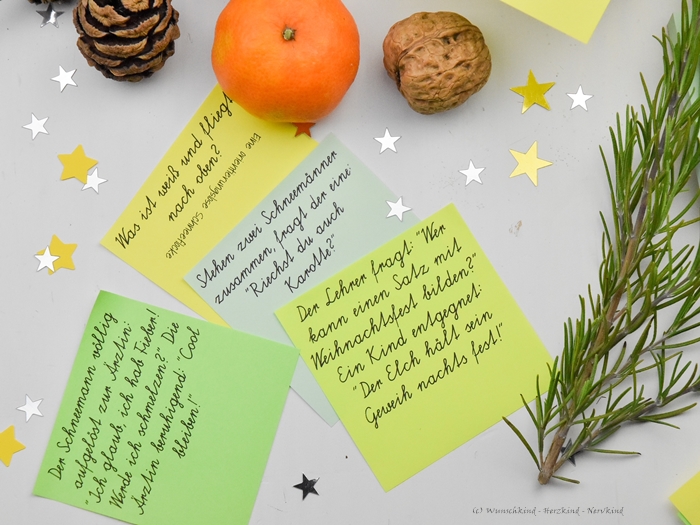 Was ist weiß und fliegt
nach oben?
Eine orientierungslose Schneeflocke
Stehen zwei Schneemänner
zusammen, fragt der eine:
"Riechst du auch
Karotte?"
Der Lehrer fragt: "Wer
kann einen Satz mit
Weihnachtsfest bilden?"
Ein Kind entgegnet:
"Der Elch hält sein
Geweih nachts fest!"
Der Schneemann völlig
aufgelöst zur Ärztin:
"Ich glaub, ich hab Fieber!
Werde ich schmelzen?" Die
Ärztin beruhigend: "Cool
bleiben!"
(c) Wunschkind - Herzkind - Nervkind